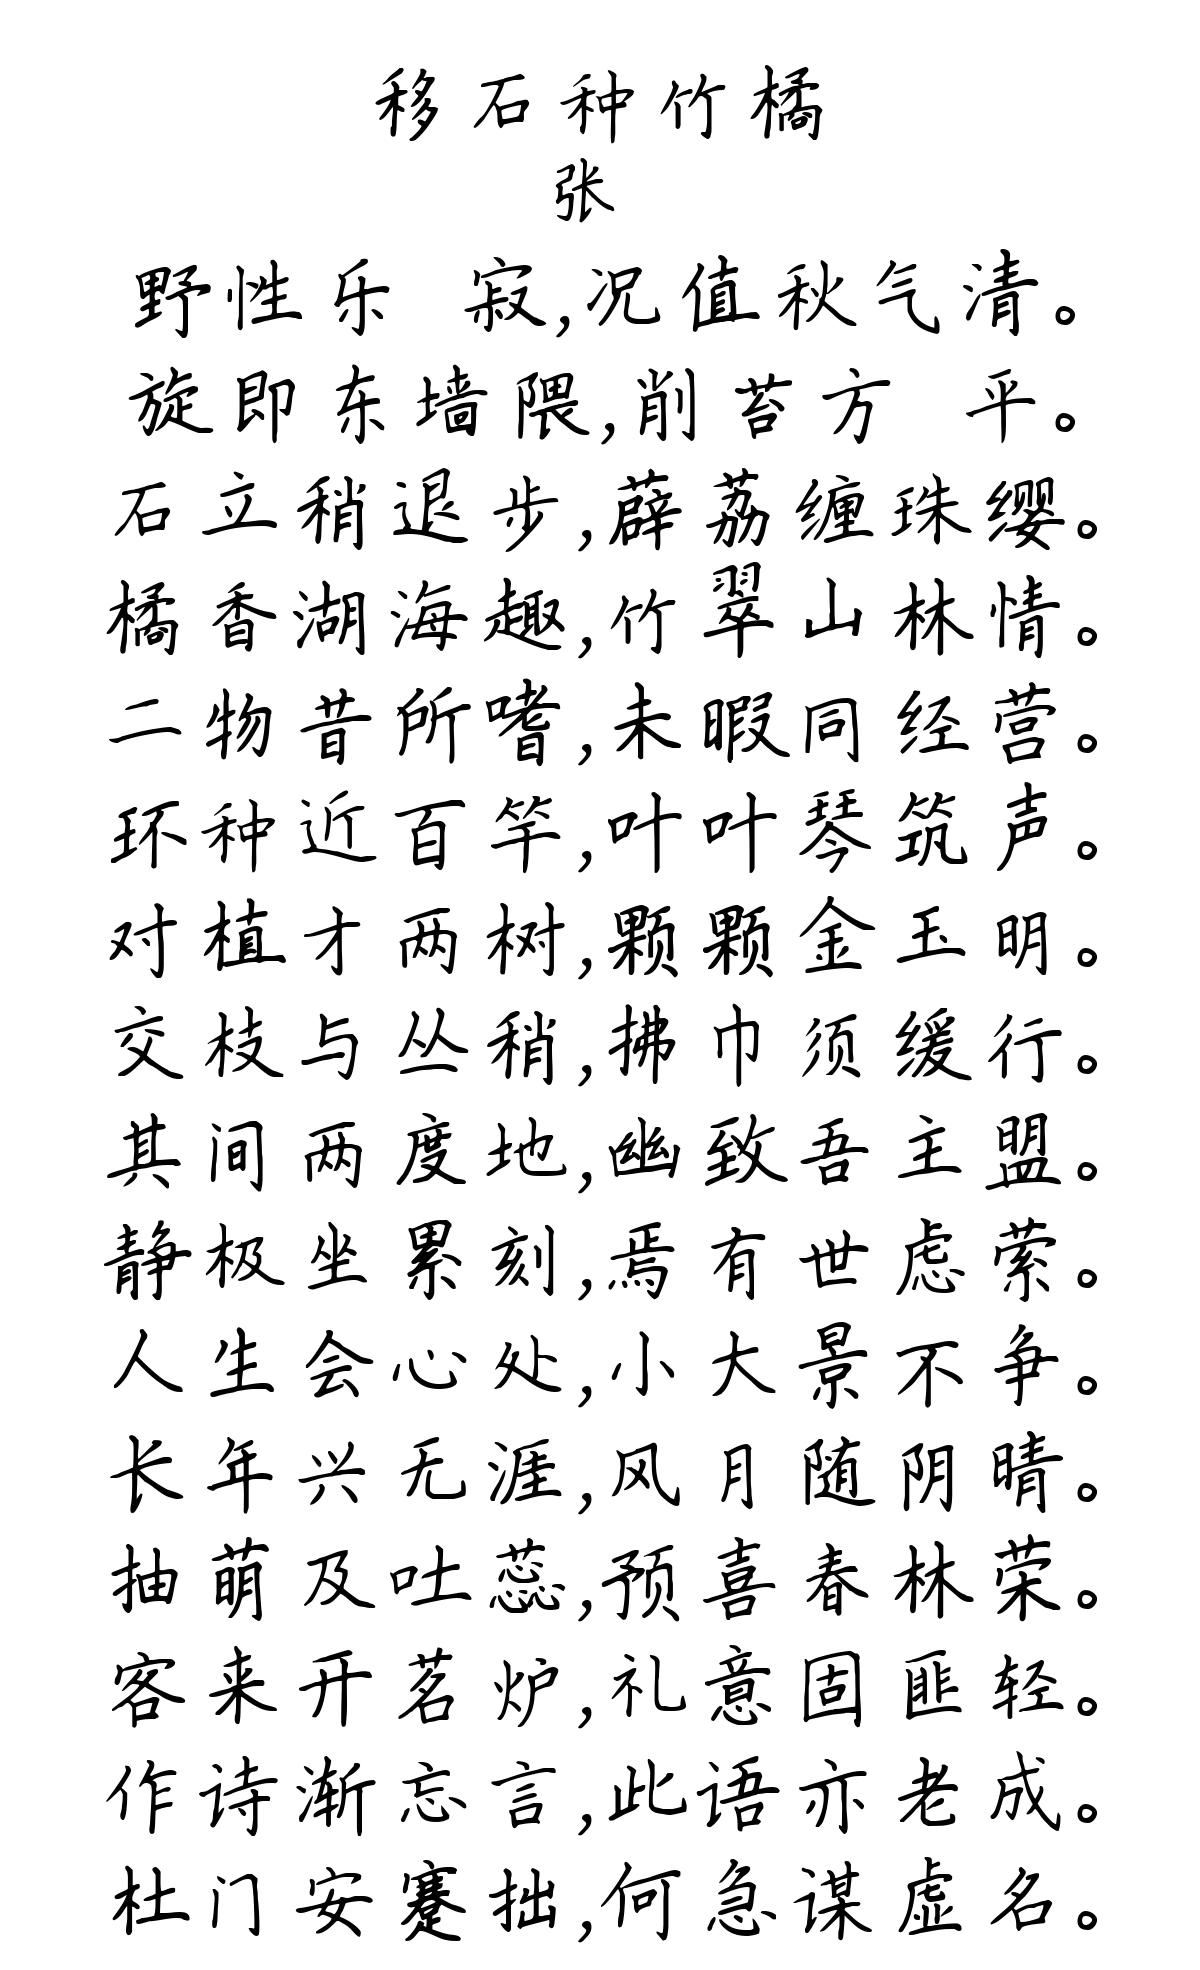 移石种竹橘
张
野性乐 寂,况值秋气清。
旋即东墙隈,削苔方 平。
石立稍退步,薜荔缠珠缨。
橘香湖海趣,竹翠山林情。
二物昔所嗜,未暇同经营。
环种近百竿,叶叶琴筑声。
对植才两树,颗颗金玉明。
交枝与丛稍,拂巾须缓行。
其间两度地,幽致吾主盟。
静极坐累刻,焉有世虑萦。
人生会心处,小大景不争。
长年兴无涯,风月随阴晴。
抽萌及吐蕊,预喜春林荣。
客来开茗炉,礼意固匪轻。
作诗渐忘言,此语亦老成。
杜门安蹇拙,何急谋虚名。